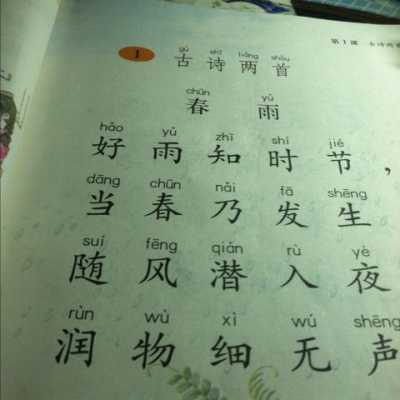 第1课 古诗两首
1
gǔ shī liǎng shǒu
古诗两首
chūn yǔ
春雨
hǎo yǔ zhī shí jié
好雨知时节，
dāng chūn nǎi fā shēng
当春乃发生
suí fēng qián rù yè
随风潜入夜
rùn wù xì wú shēng
润物细无声